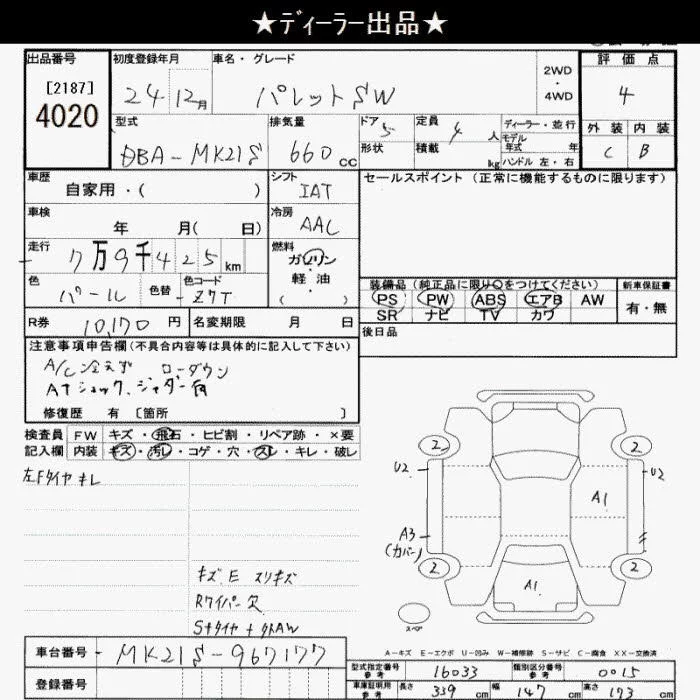 ★ディーラー出品★
出品番号 初度登録年月 車名・グレード 評価点
[2187] 24 12月 パレットSW 2WD・4WD 4
4020 型式 排気量 ドア 5 定員 4人 ディーラー・並行 外装 内装
DBA-MK21S 660cc 形状 積載 kg モデル年式 年 ハンドル 左・右 C B
車歴 自家用・( ) シフト IAT セールスポイント (正常に機能するものに限ります)
車検 年 月( 日) 冷房 AAC
走行 7万9千425km 燃料 ガソリン
色 パール 色替 色コード Z7T 軽油 ( )
装備品 (純正品に限り○をつけてください) 新車保証書
PS PW ABS エアB AW 有・無
SR ナビ TV カワ
R券 10,170円 名変期限 月 日 後日品
注意事項申告欄(不具合内容等は具体的に記入して下さい)
A/C冷えず ローダウン
ATショック、ジャダー有
修復歴 有 〔箇所 〕
検査員 FW キズ・飛石・ヒビ割・リペア跡・×要
記入欄 内装 キズ・汚レ・コゲ・穴・スレ・キレ・破レ
左Fタイヤキレ
キズ E スリキズ
Rワイパー欠
Sナタイヤ+外AW
2 2
U2 U2
A1
A3
(カバー)
2 2
A1
スペア
A-キズ E-エクボ U-凹み W-補修跡 S-サビ C-腐食 XX-交換済
車台番号 MK21S-967177
登録番号
型式指定番号 参考 16033 類別区分番号 参考 0015
車庫証明用 参考 長さ 339cm 幅 147cm 高さ 173cm